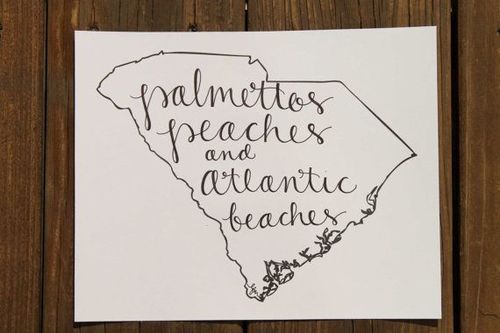 palmettos
peaches
and
atlantic
beaches